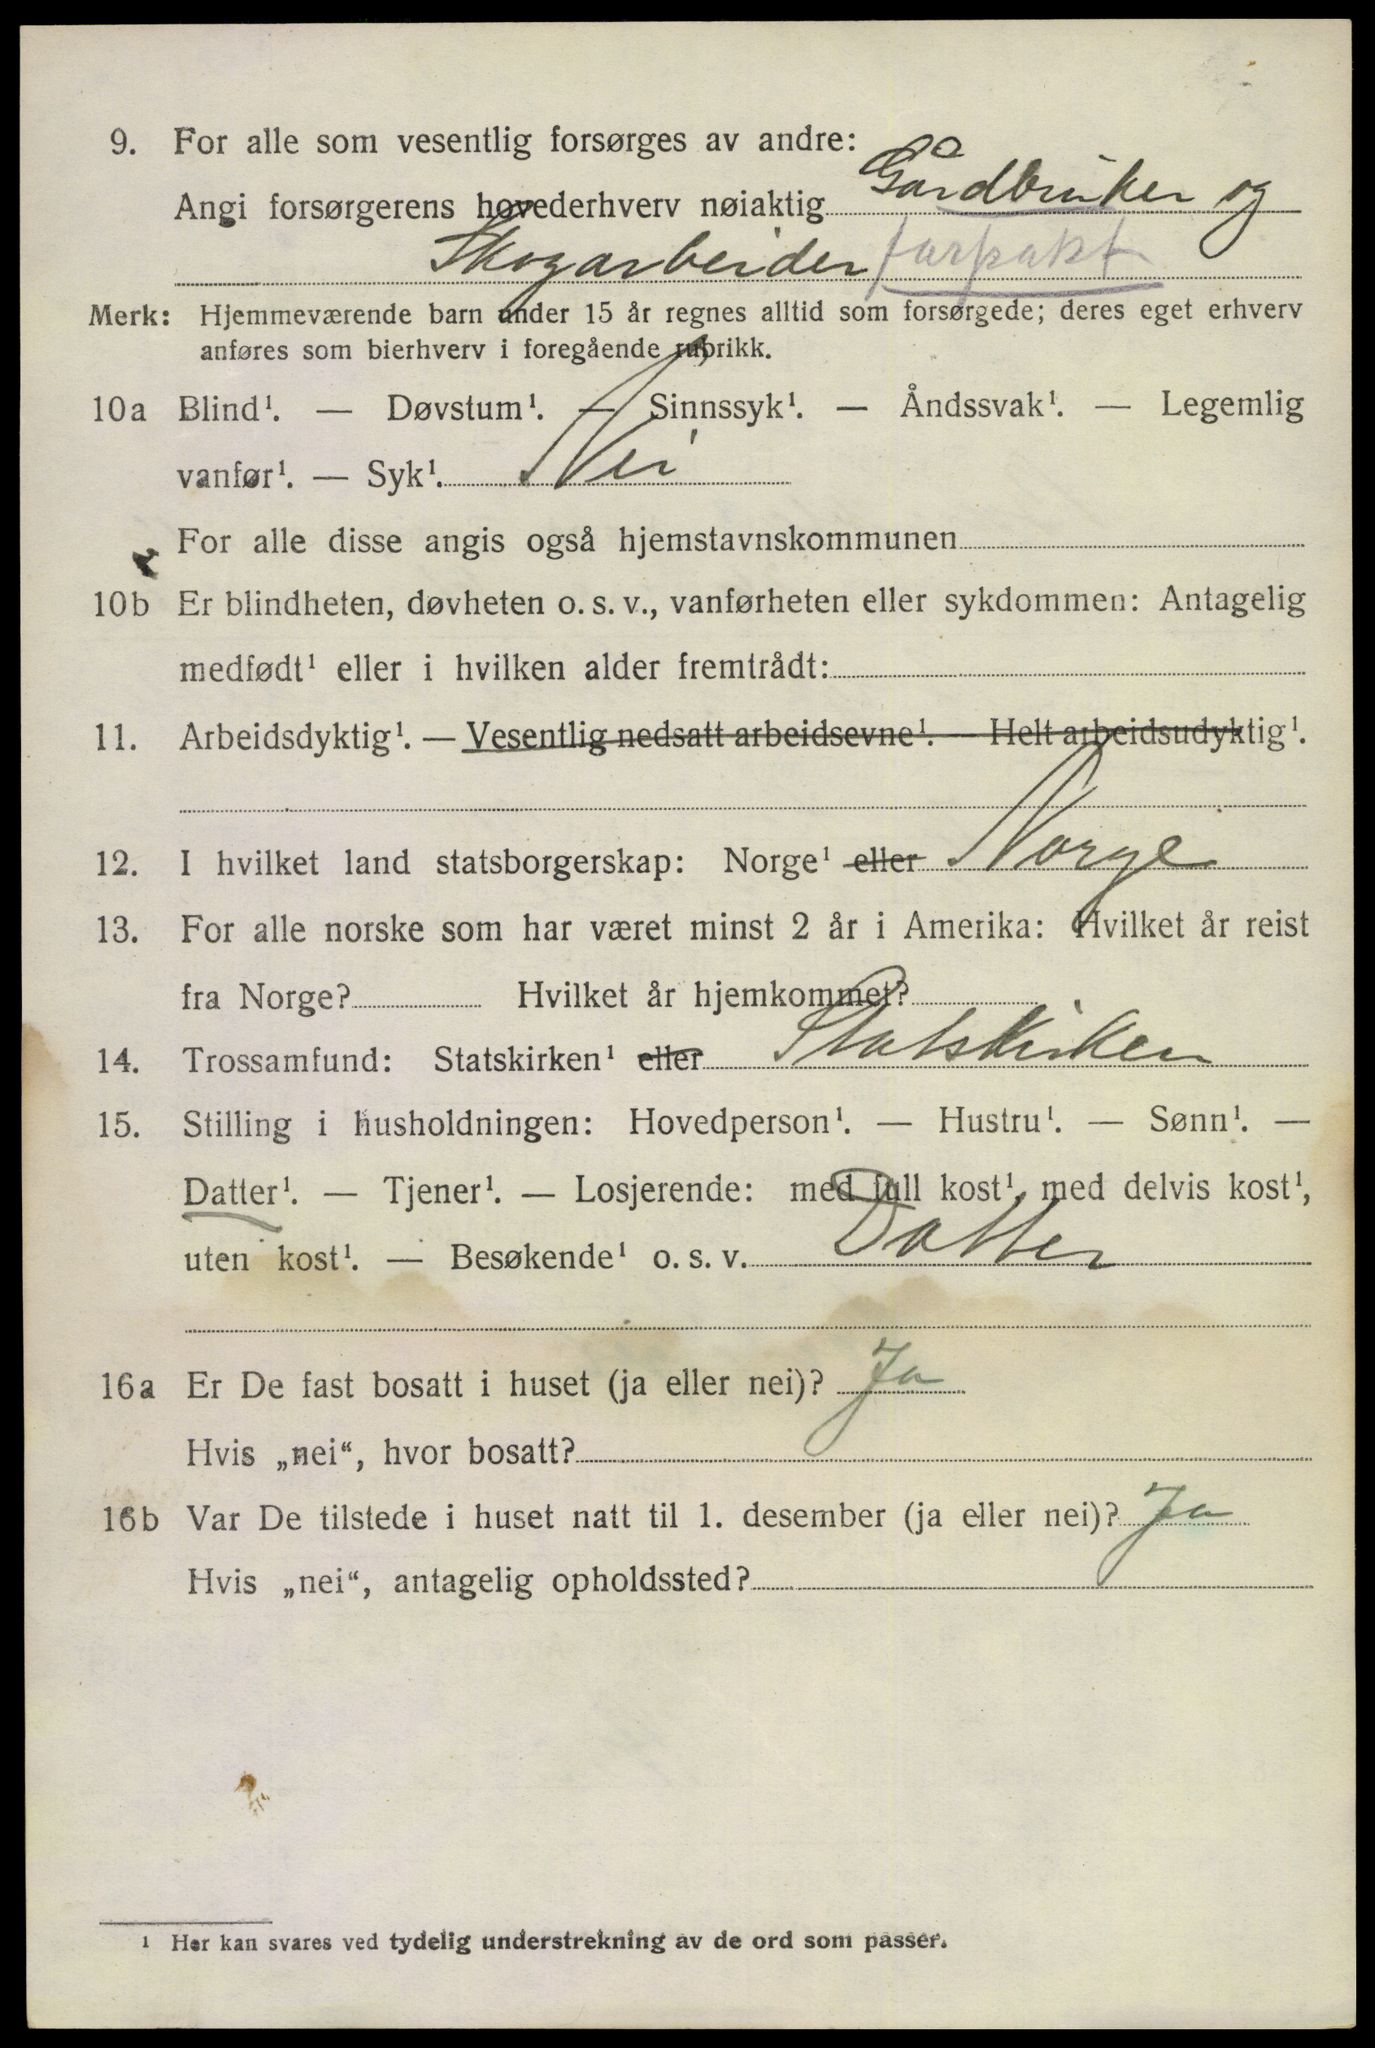 9. For alle som vesentlig forsørges av andre:
Angi forsørgerens hovederhverv nøiaktig Gårdbruker og
Skogarbeider forpakt
Merk: Hjemmeværende barn under 15 år regnes alltid som forsørgede; deres eget erhverv
anføres som bierhverv i foregående rubrikk.
10a Blind¹. — Døvstum¹. — Sinnssyk¹. — Åndssvak¹. — Legemlig
vanfør¹. — Syk¹. Nei
For alle disse angis også hjemstavnskommunen
10b Er blindheten, døvheten o. s. v., vanførheten eller sykdommen: Antagelig
medfødt¹ eller i hvilken alder fremtrådt:
11. Arbeidsdyktig¹. — Vesentlig nedsatt arbeidsevne¹. — Helt arbeidsudyktig¹.
12. I hvilket land statsborgerskap: Norge¹ eller Norge
13. For alle norske som har været minst 2 år i Amerika: Hvilket år reist
fra Norge? Hvilket år hjemkommet?
14. Trossamfund: Statskirken¹ eller Statskirken
15. Stilling i husholdningen: Hovedperson¹. — Hustru¹. — Sønn¹. —
Datter¹. — Tjener¹. — Losjerende: med full kost¹, med delvis kost¹,
uten kost¹. — Besøkende¹ o. s. v. Datter
16a Er De fast bosatt i huset (ja eller nei)? Ja
Hvis „nei“, hvor bosatt?
16b Var De tilstede i huset natt til 1. desember (ja eller nei)? Ja
Hvis „nei“, antagelig opholdssted?
¹ Her kan svares ved tydelig understrekning av de ord som passer.